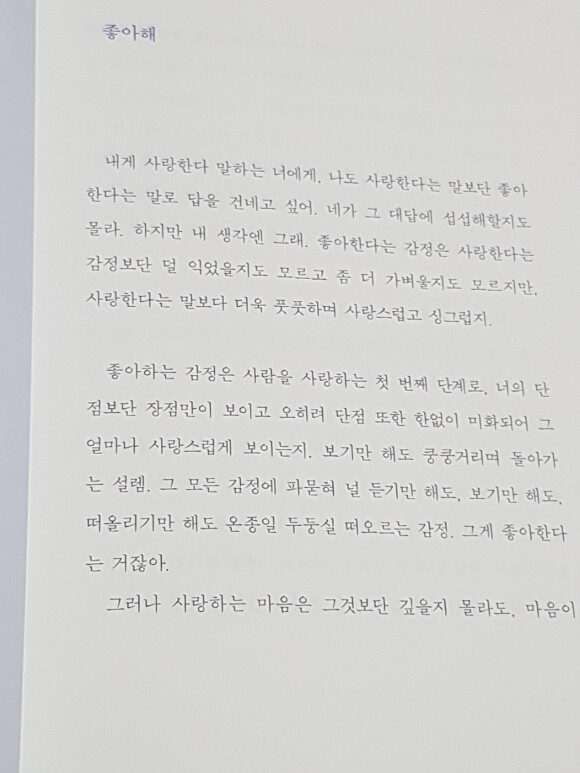 좋아해
내게 사랑한다 말하는 너에게. 나도 사랑한다는 말보단 좋아
한다는 말로 답을 건네고 싶어. 네가 그 대답에 섭섭해할지도
몰라. 하지만 내 생각엔 그래. 좋아한다는 감정은 사랑한다는
감정보단 덜 익었을지도 모르고 좀 더 가벼울지도 모르지만,
사랑한다는 말보다 더욱 풋풋하며 사랑스럽고 싱그럽지.
좋아하는 감정은 사람을 사랑하는 첫 번째 단계로, 너의 단
점보단 장점만이 보이고 오히려 단점 또한 한없이 미화되어 그
얼마나 사랑스럽게 보이는지. 보기만 해도 쿵쿵거리며 돌아가
는 설렘. 그 모든 감정에 파묻혀 널 듣기만 해도, 보기만 해도,
떠올리기만 해도 온종일 두둥실 떠오르는 감정. 그게 좋아한다
는 거잖아.
그러나 사랑하는 마음은 그것보단 깊을지 몰라도, 마음이